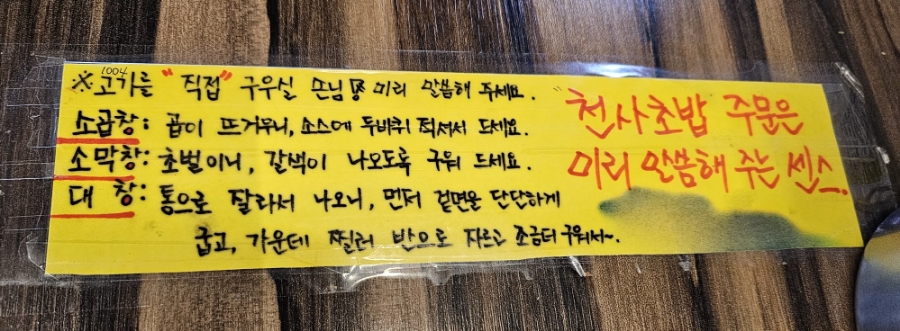 1004
※고기를 "직접" 구우실 손님은 미리 말씀해 주세요.
소곱창: 곱이 뜨거우니, 소스에 두바퀴 적셔서 드세요.
소막창: 초벌이니, 갈색이 나오도록 구워 드세요.
대 창: 통으로 잘라서 나오니, 먼저 겉면을 단단하게
굽고, 가운데 찔러 반으로 자르고 조금더 구워서~.
천사초밥 주문은
미리 말씀해 주는 센스.